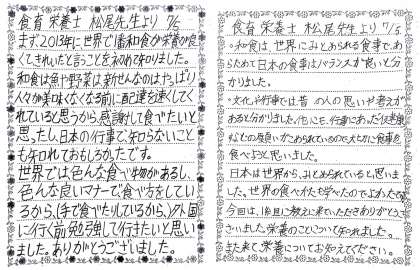 食育 栄養士 松尾先生より 7/5
まず、2013年に世界で1番和食が栄養が良
くてきれいだと言うことを初めて知りました。
和食は魚や野菜は新せんなのはやっぱり
人々が美味くなくなる前に配達を速くしてく
れていると思うから、感謝して食べたいと
思ったし、日本の行事で知らないこと
も知れておもしろかったです。
世界では色んな食べ物があるし、
色んな良いマナーで食べ方をしてい
るから、(手で食べたりしているから、)外国
に行く前に勉強して行きたいと思い
ました。ありがとうございました。

食育 栄養士 松尾先生より 7/5
・和食は、世界にみとめられる食事で、あ
らためて日本の食事はバランスが良いと分
かりました。
・文化や行事では昔の人の思いや考えが
あると分かりました。他にも、行事にあった
などの願いがこめられているので大切に食事を
食べようと思いました。
日本は世界から、みとめられていると思いま
した。世界の食べかたも学べたのでよかったです。
今回は、1年2組に教えに来ていただきありがとうご
ざいました。栄養のことについて知れました。
また来て、栄養についておしえてください。